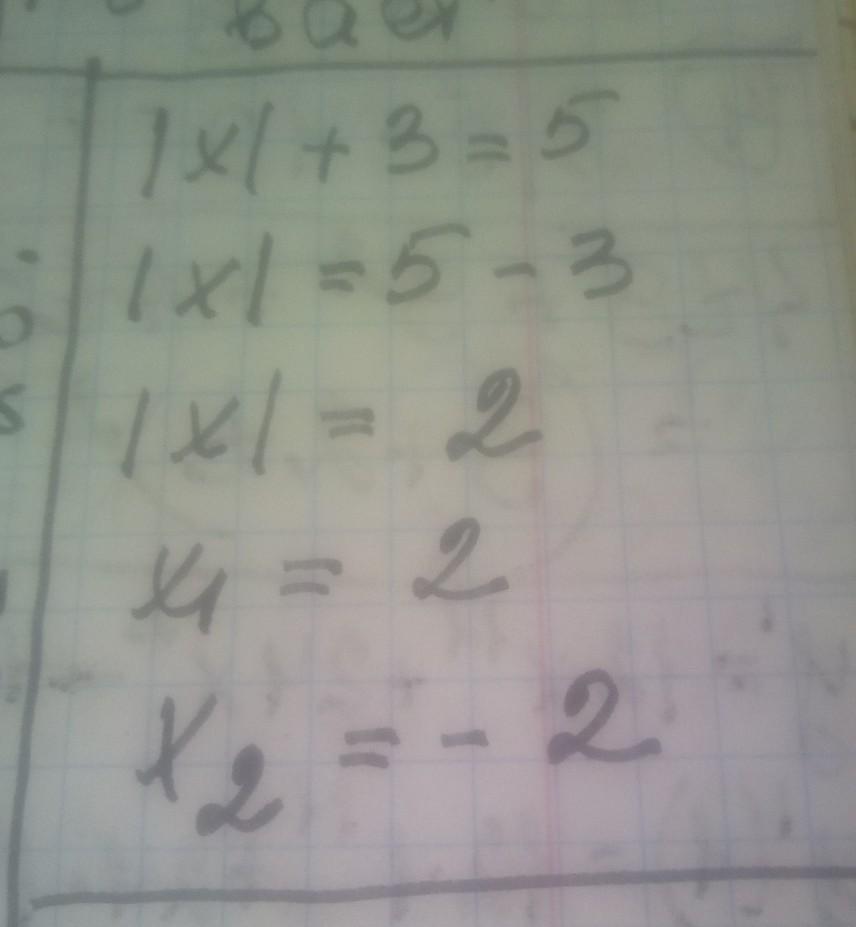 |x| + 3 = 5
|x| = 5 - 3
|x| = 2
x₁ = 2
x₂ = - 2